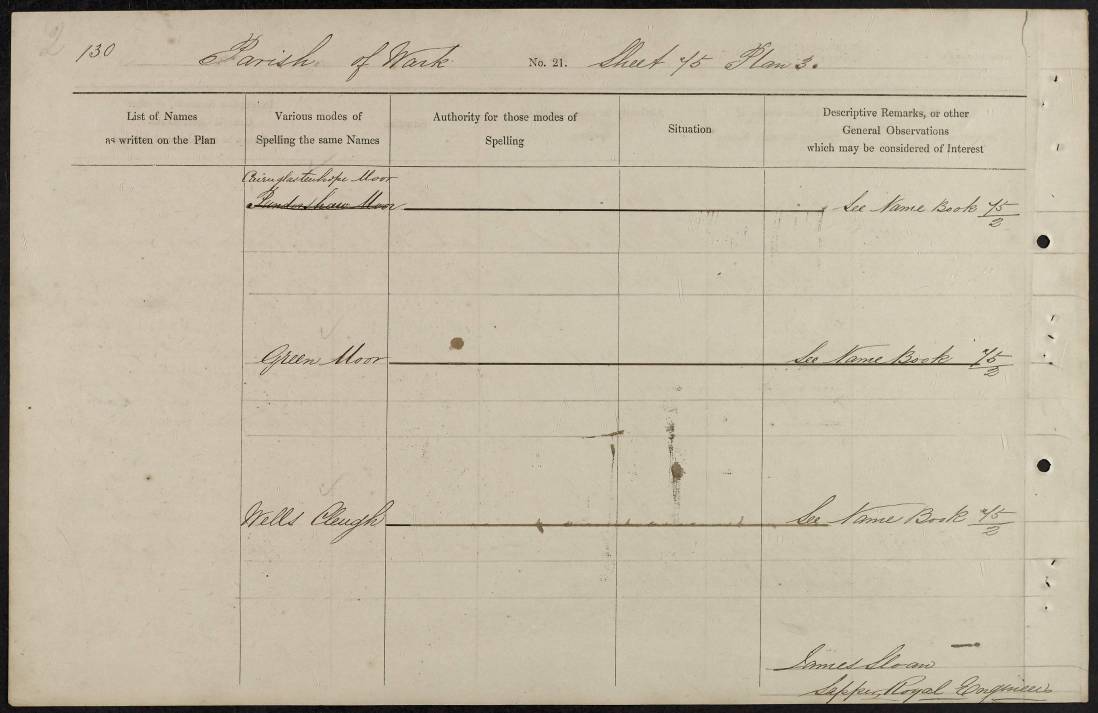 130 Parish of Wark No. 21. Sheet 75 Plan 3.
List of Names
as written on the Plan
Various modes of
Spelling the same Names
Authority for those modes of
Spelling
Situation
Descriptive Remarks, or other
General Observations
which may be considered of Interest
Cairnglastenhope Moor
Pundershaw Moor See Name Book 75/2
Green Moor See Name Book 75/2
Wells Cleugh See Name Book 75/2
James Sloan
Sapper, Royal Engineers